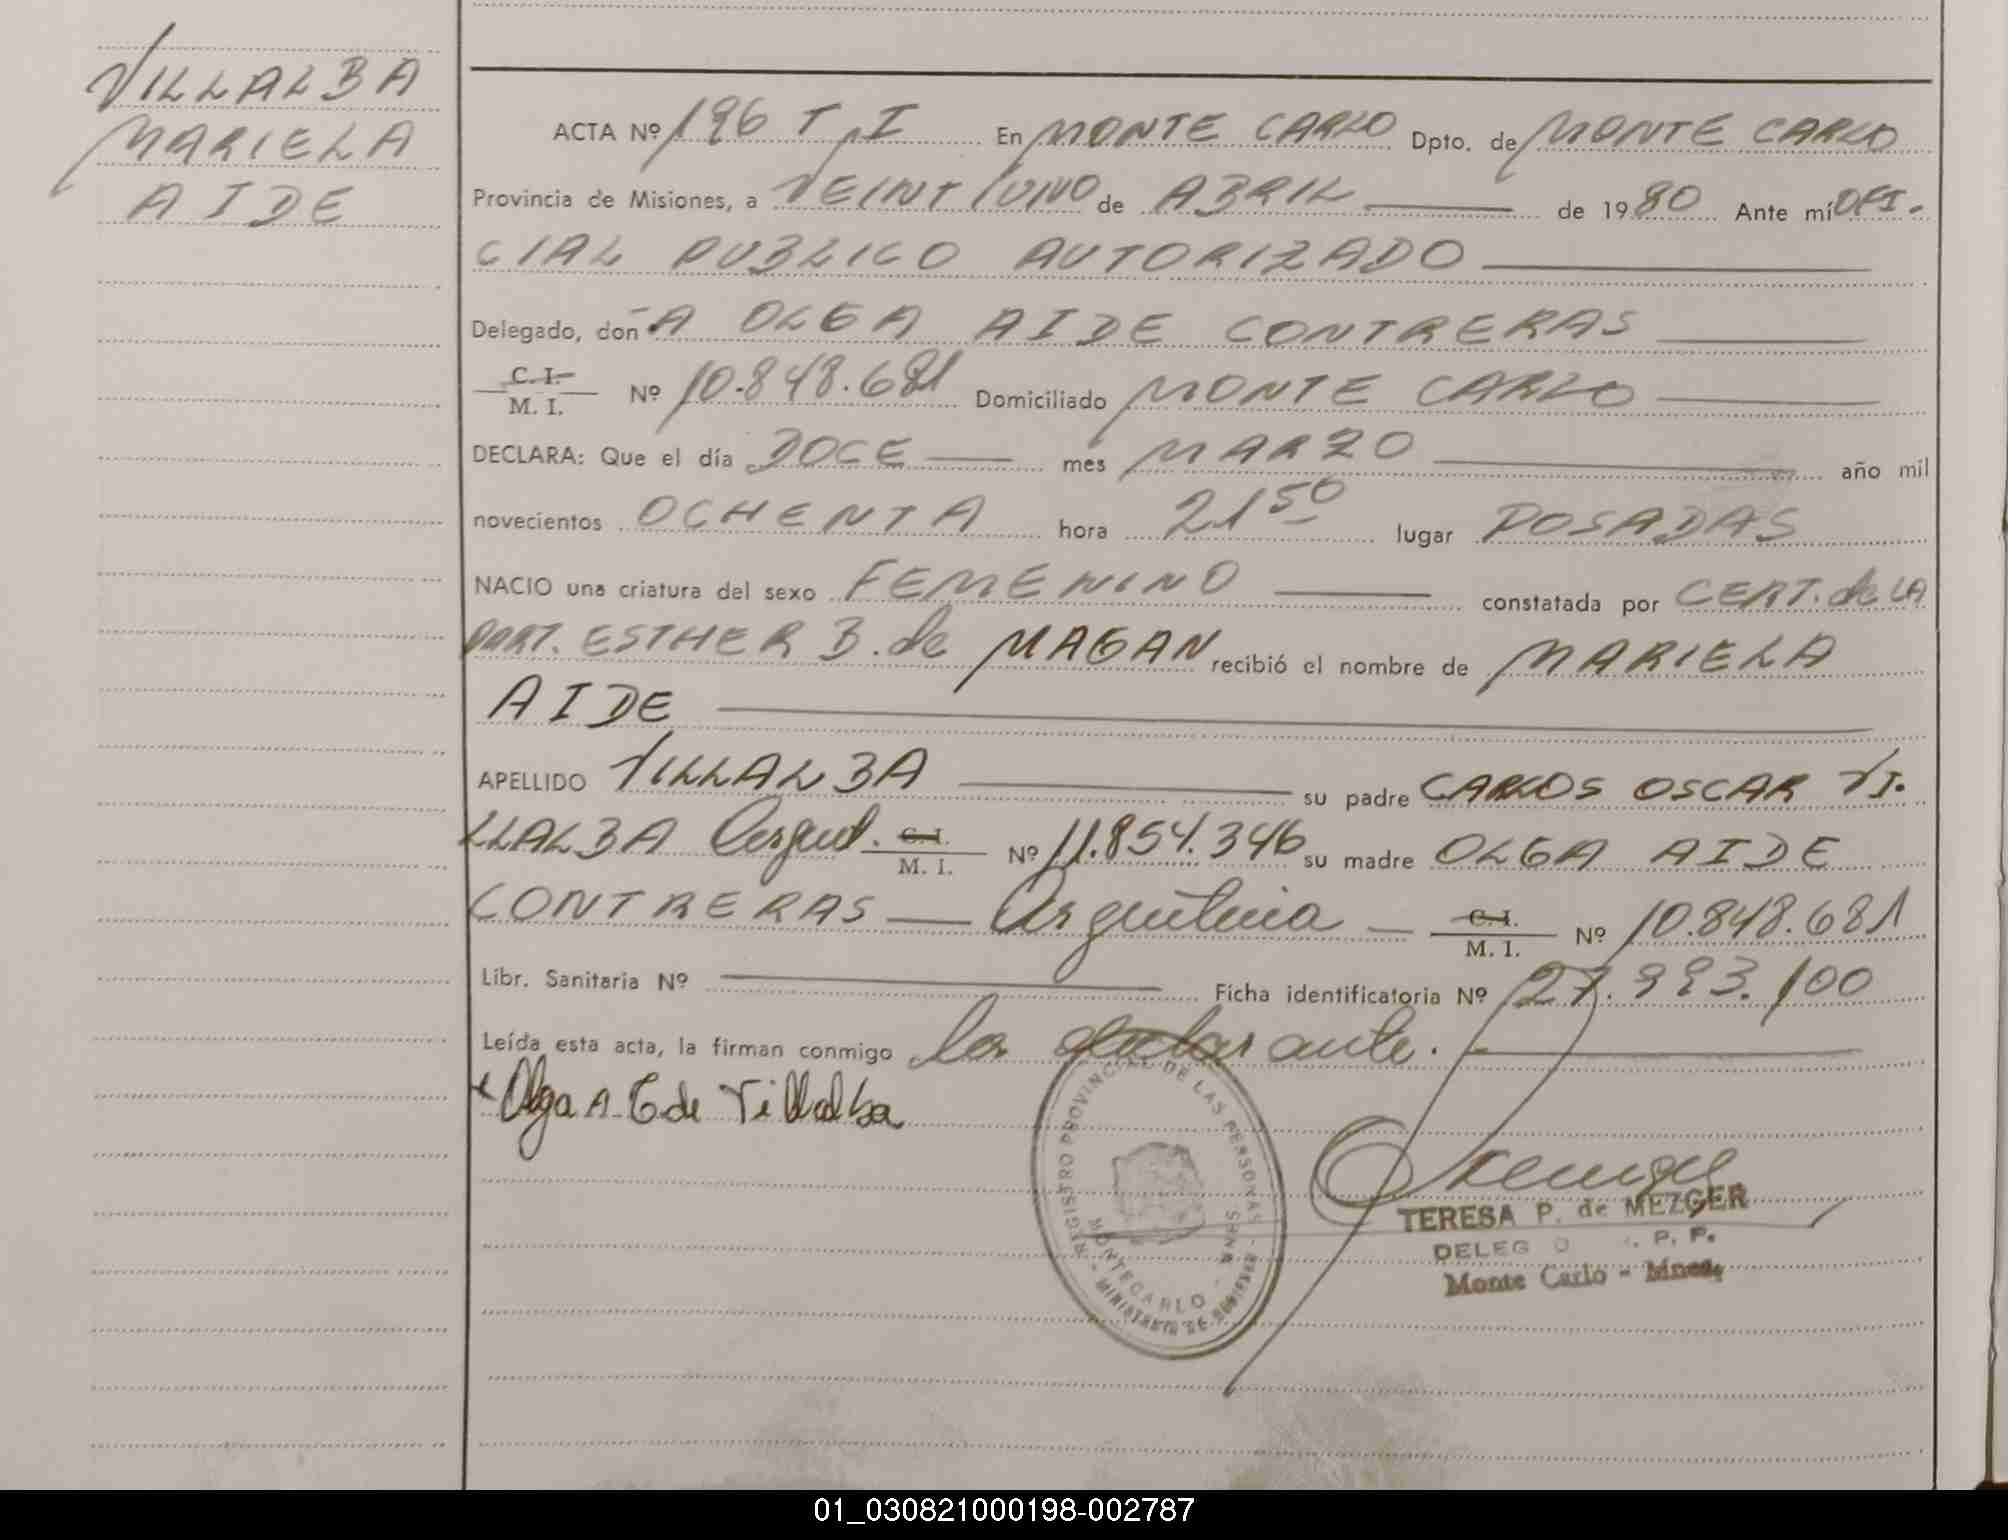 VILLALBA
MARIELA
AIDE
ACTA Nº 196 T I En MONTE CARLO Dpto. de MONTE CARLO
Provincia de Misiones, a VEINTIUNO de ABRIL de 1980 Ante mí OFI-
CIAL PUBLICO AUTORIZADO
Delegado, don-A OLGA AIDE CONTRERAS
C. I.
M. I. Nº 10.848.681 Domiciliado MONTE CARLO
DECLARA: Que el día DOCE mes MARZO año mil
novecientos OCHENTA hora 21 50 lugar POSADAS
NACIO una criatura del sexo FEMENINO constatada por CERT. de LA
PART. ESTHER B. de MAGAN recibió el nombre de MARIELA
AIDE
APELLIDO VILLALBA su padre CARLOS OSCAR VI-
LLALBA Argent. C. I. M. I. Nº 11.854.346 su madre OLGA AIDE
CONTRERAS Argentina C. I. M. I. Nº 10.848.681
Libr. Sanitaria Nº Ficha identificatoria Nº 27.993.100
Leída esta acta, la firman conmigo la declarante.
Olga A. C. de Villalba
REGISTRO PROVINCIAL DE LAS PERSONAS - MNES
MONTECARLO
MINISTERIO DE GOBIERNO
TERESA P. de MEZGER
DELEG O . P. P.
Monte Carlo - Mnes.
01_030821000198-002787